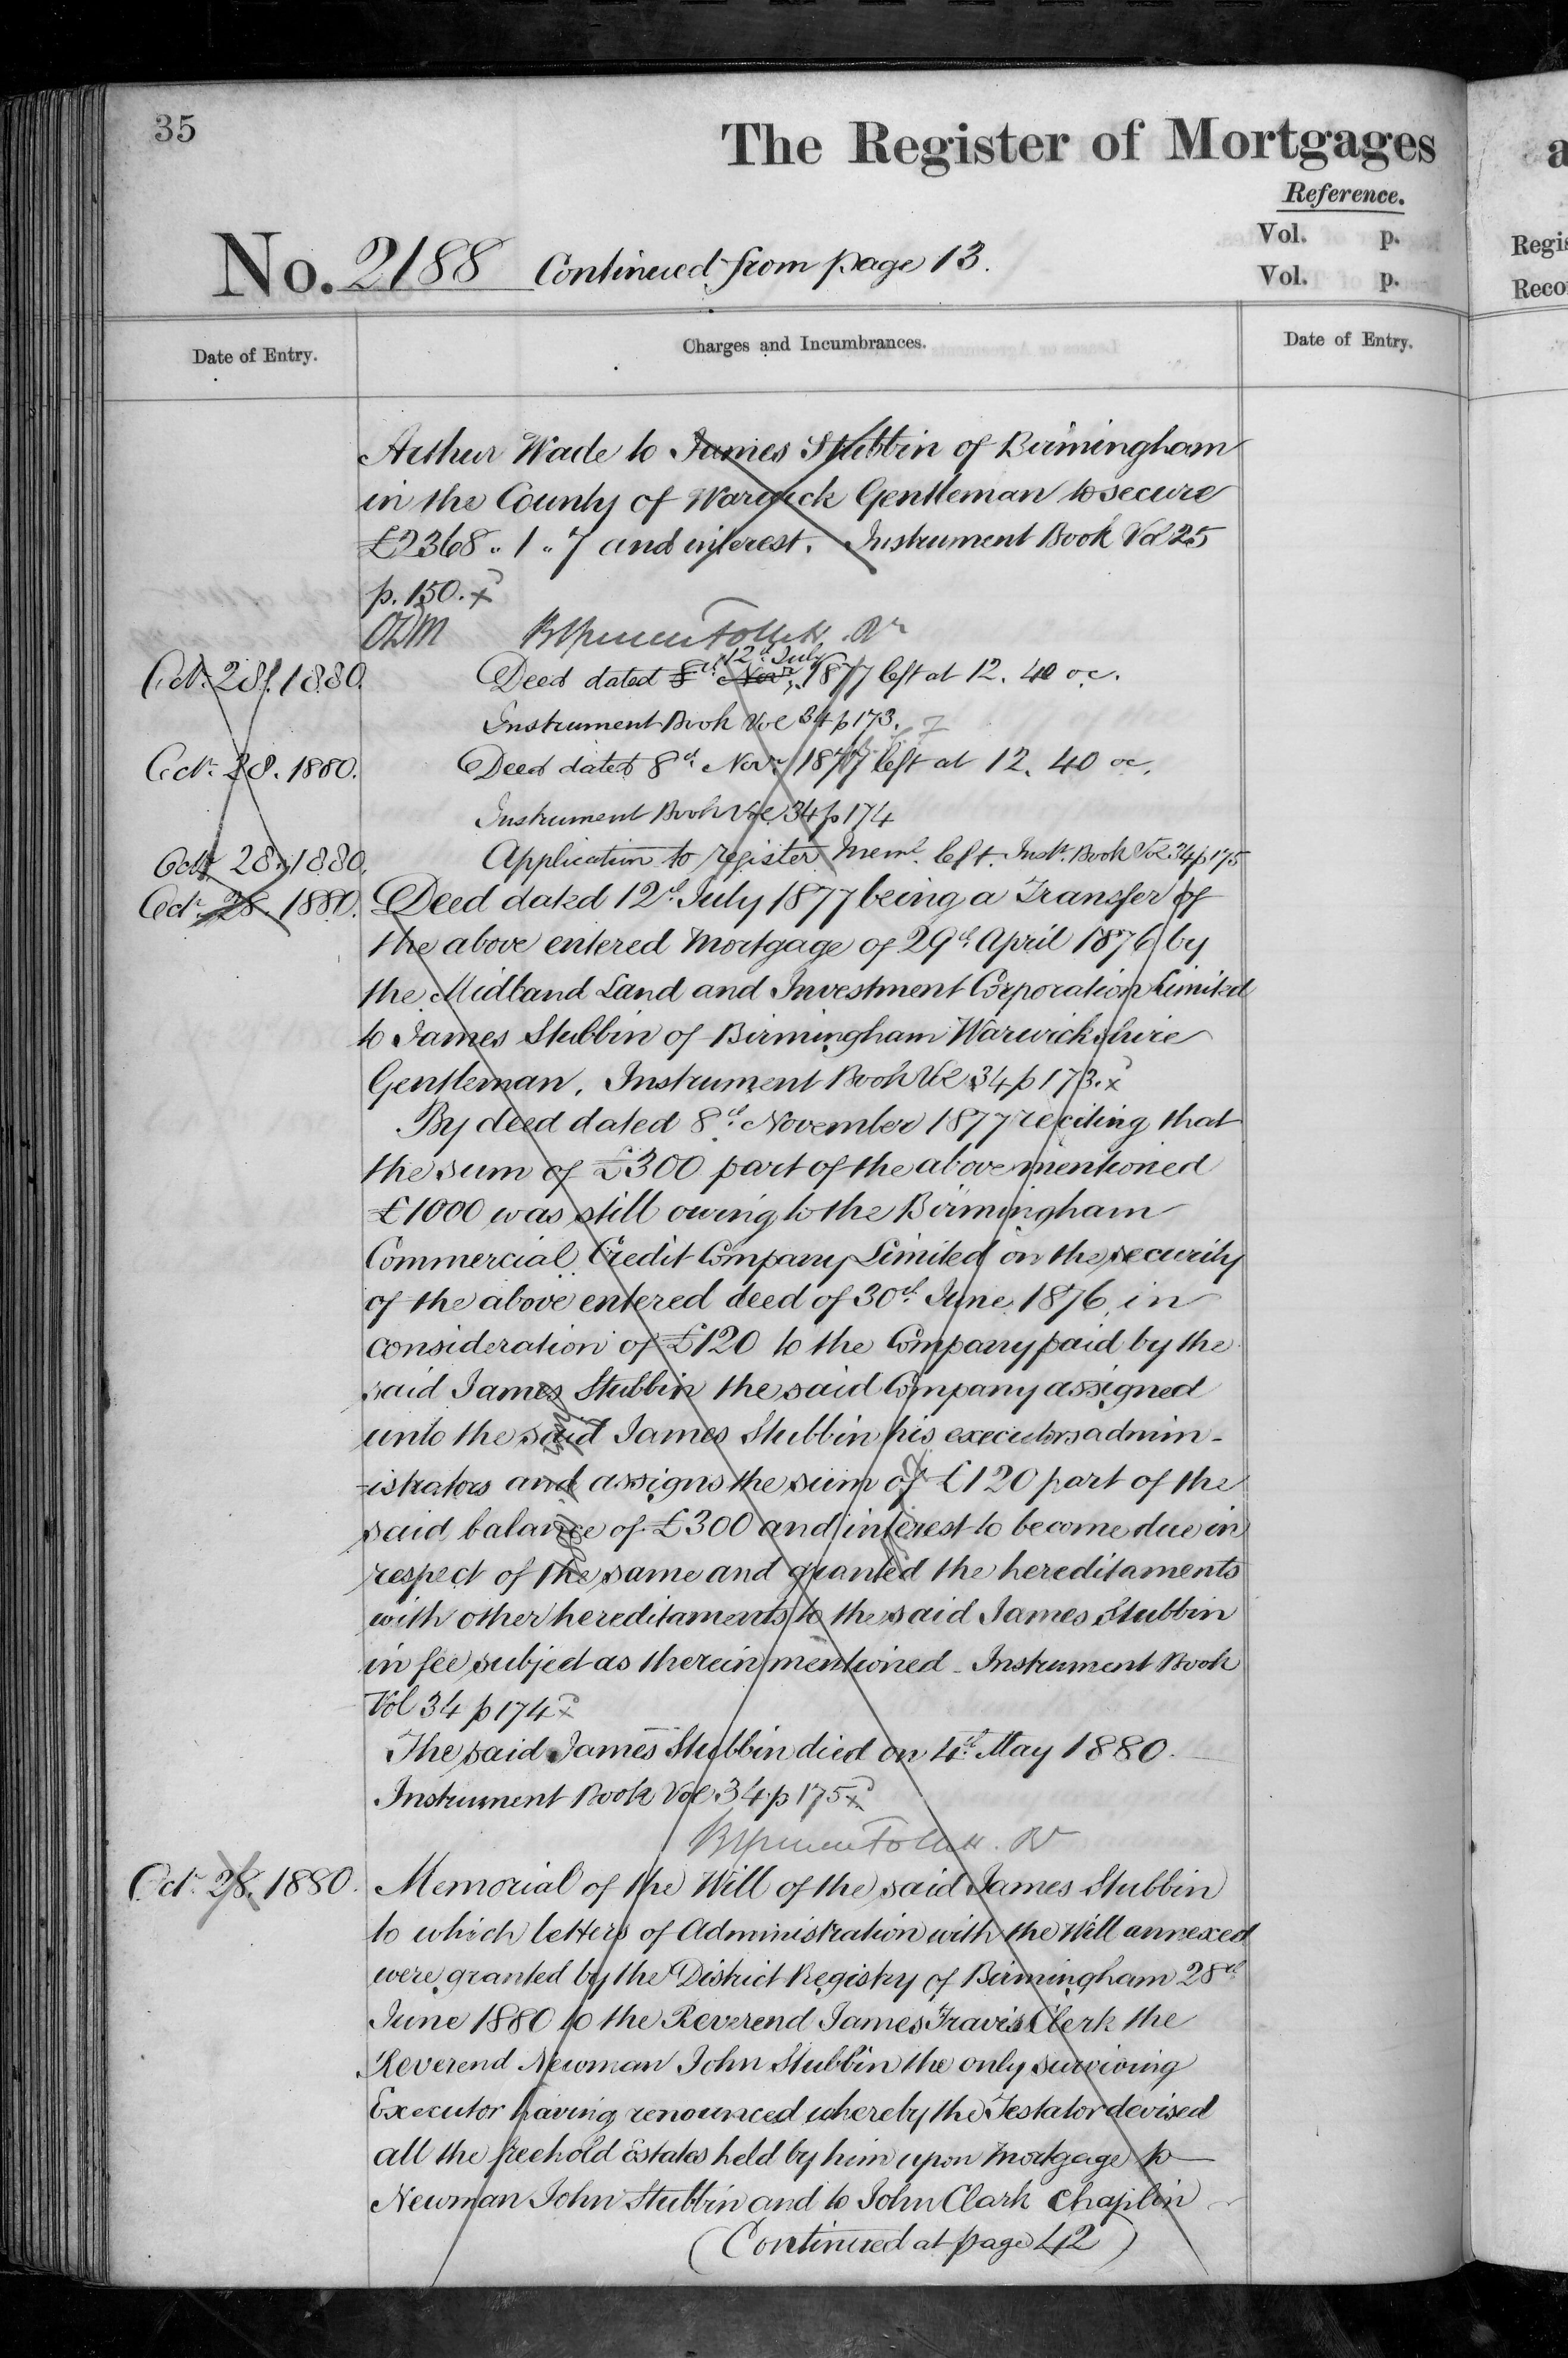 35
The Register of Mortgages
Reference.
Vol. p.
Vol. p.
No. 2188 Continued from page 13.
Date of Entry.
Charges and Incumbrances.
Date of Entry.
Arthur Wade to James Stubbin of Birmingham
in the County of Warwick Gentleman to secure
£2368 " 1 " 7 and interest. Instrument Book Vol 25
p. 150. x
12th July
Oct. 28. 1880. Deed dated 8th Novr. 1877 left at 12. 40 oc.
Instrument Book Vol 34 p 173.
Oct. 28. 1880. Deed dated 8th Novr. 1877 left at 12. 40 oc.
Instrument Book Vol 34 p 174
Octr 28. 1880. Application to register Meml. left. Inst. Book Vol 34 p 175
Octr 28. 1880. Deed dated 12th July 1877 being a Transfer of
the above entered Mortgage of 29th April 1876 by
the Midland Land and Investment Corporation Limited
to James Stubbin of Birmingham Warwickshire
Gentleman. Instrument Book Vol 34 p 173. x
By deed dated 8th November 1877 reciting that
the sum of £300 part of the above mentioned
£1000 was still owing to the Birmingham
Commercial Credit Company Limited on the security
of the above entered deed of 30th June 1876 in
consideration of £120 to the Company paid by the
said James Stubbin the said Company assigned
unto the said James Stubbin his executors admin-
-istrators and assigns the sum of £120 part of the
said balance of £300 and interest to become due in
respect of the same and granted the hereditaments
with other hereditaments to the said James Stubbin
in fee subject as therein mentioned - Instrument Book
Vol 34 p 174 x
The said James Stubbin died on 4th May 1880.
Instrument Book Vol 34 p 175 x
Octr 28. 1880. Memorial of the Will of the said James Stubbin
to which letters of Administration with the Will annexed
were granted by the District Registry of Birmingham 28th
June 1880 to the Reverend James Travis Clerk the
Reverend Newman John Stubbin the only surviving
Executor having renounced whereby the Testator devised
all the freehold Estates held by him upon Mortgage to
Newman John Stubbin and to John Clark Chaplin
(Continued at page 42)